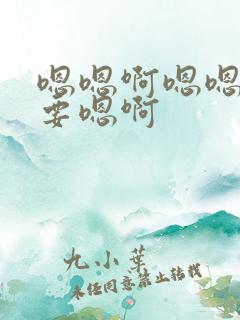 嗯嗯啊嗯嗯
要嗯啊
九小叶
未经同意禁止转载